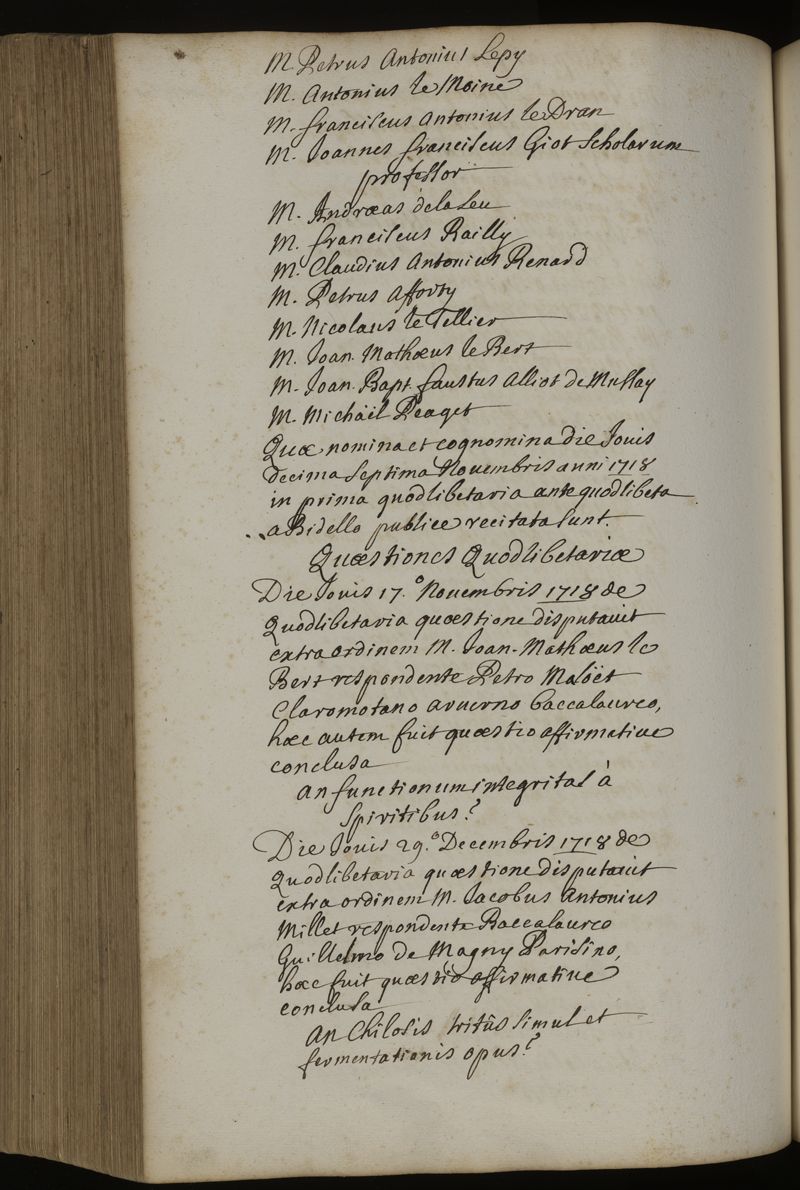 M. Petrus Antonius Lepy
M. Antonius le Moine
M. franciscus Antonius le Dran
M. Joannes franciscus Giot Scholarum
professor
M. Andræas de la Leu
M. franciscus Railly
M. Claudius Antonius Renard
M. Petrus Afforty
M. Nicolaus le Tellier
M. Joan. Mathœus le Bert
M. Joan. Bapt. faustus Alliot de Mussay
M. Michäel Peaget
Quæ nomina et cognomina Die Jouis
decima septima Nouembris anni 1718
in prima quodlibetaria ante quodlibeta
a Bidello publice recitata sunt.
Quæstiones Quodlibetariæ
Die Jouis 17.º Nouembris 1718 de
Quodlibetaria quæstione disputauit
extra ordinem M. Joan-Mathœus le
Bert respondente Petro Maloët
Claromotano aruerno baccalaureo,
hæc autem fuit quæstio affirmatiue
conclusa
an functionum integritas à
Spiritibus?
Die Jouis 29.º Decembris 1718 de
Quodlibetaria quæstione disputauit
extra ordinem M. Jacobus Antonius
Millet respondente Baccalaureo
Guillelmo de Magny Parisino,
hæc fuit quæstio affirmatiue
conclusa
An Chilosis tritûs simul et
fermentationis opus?